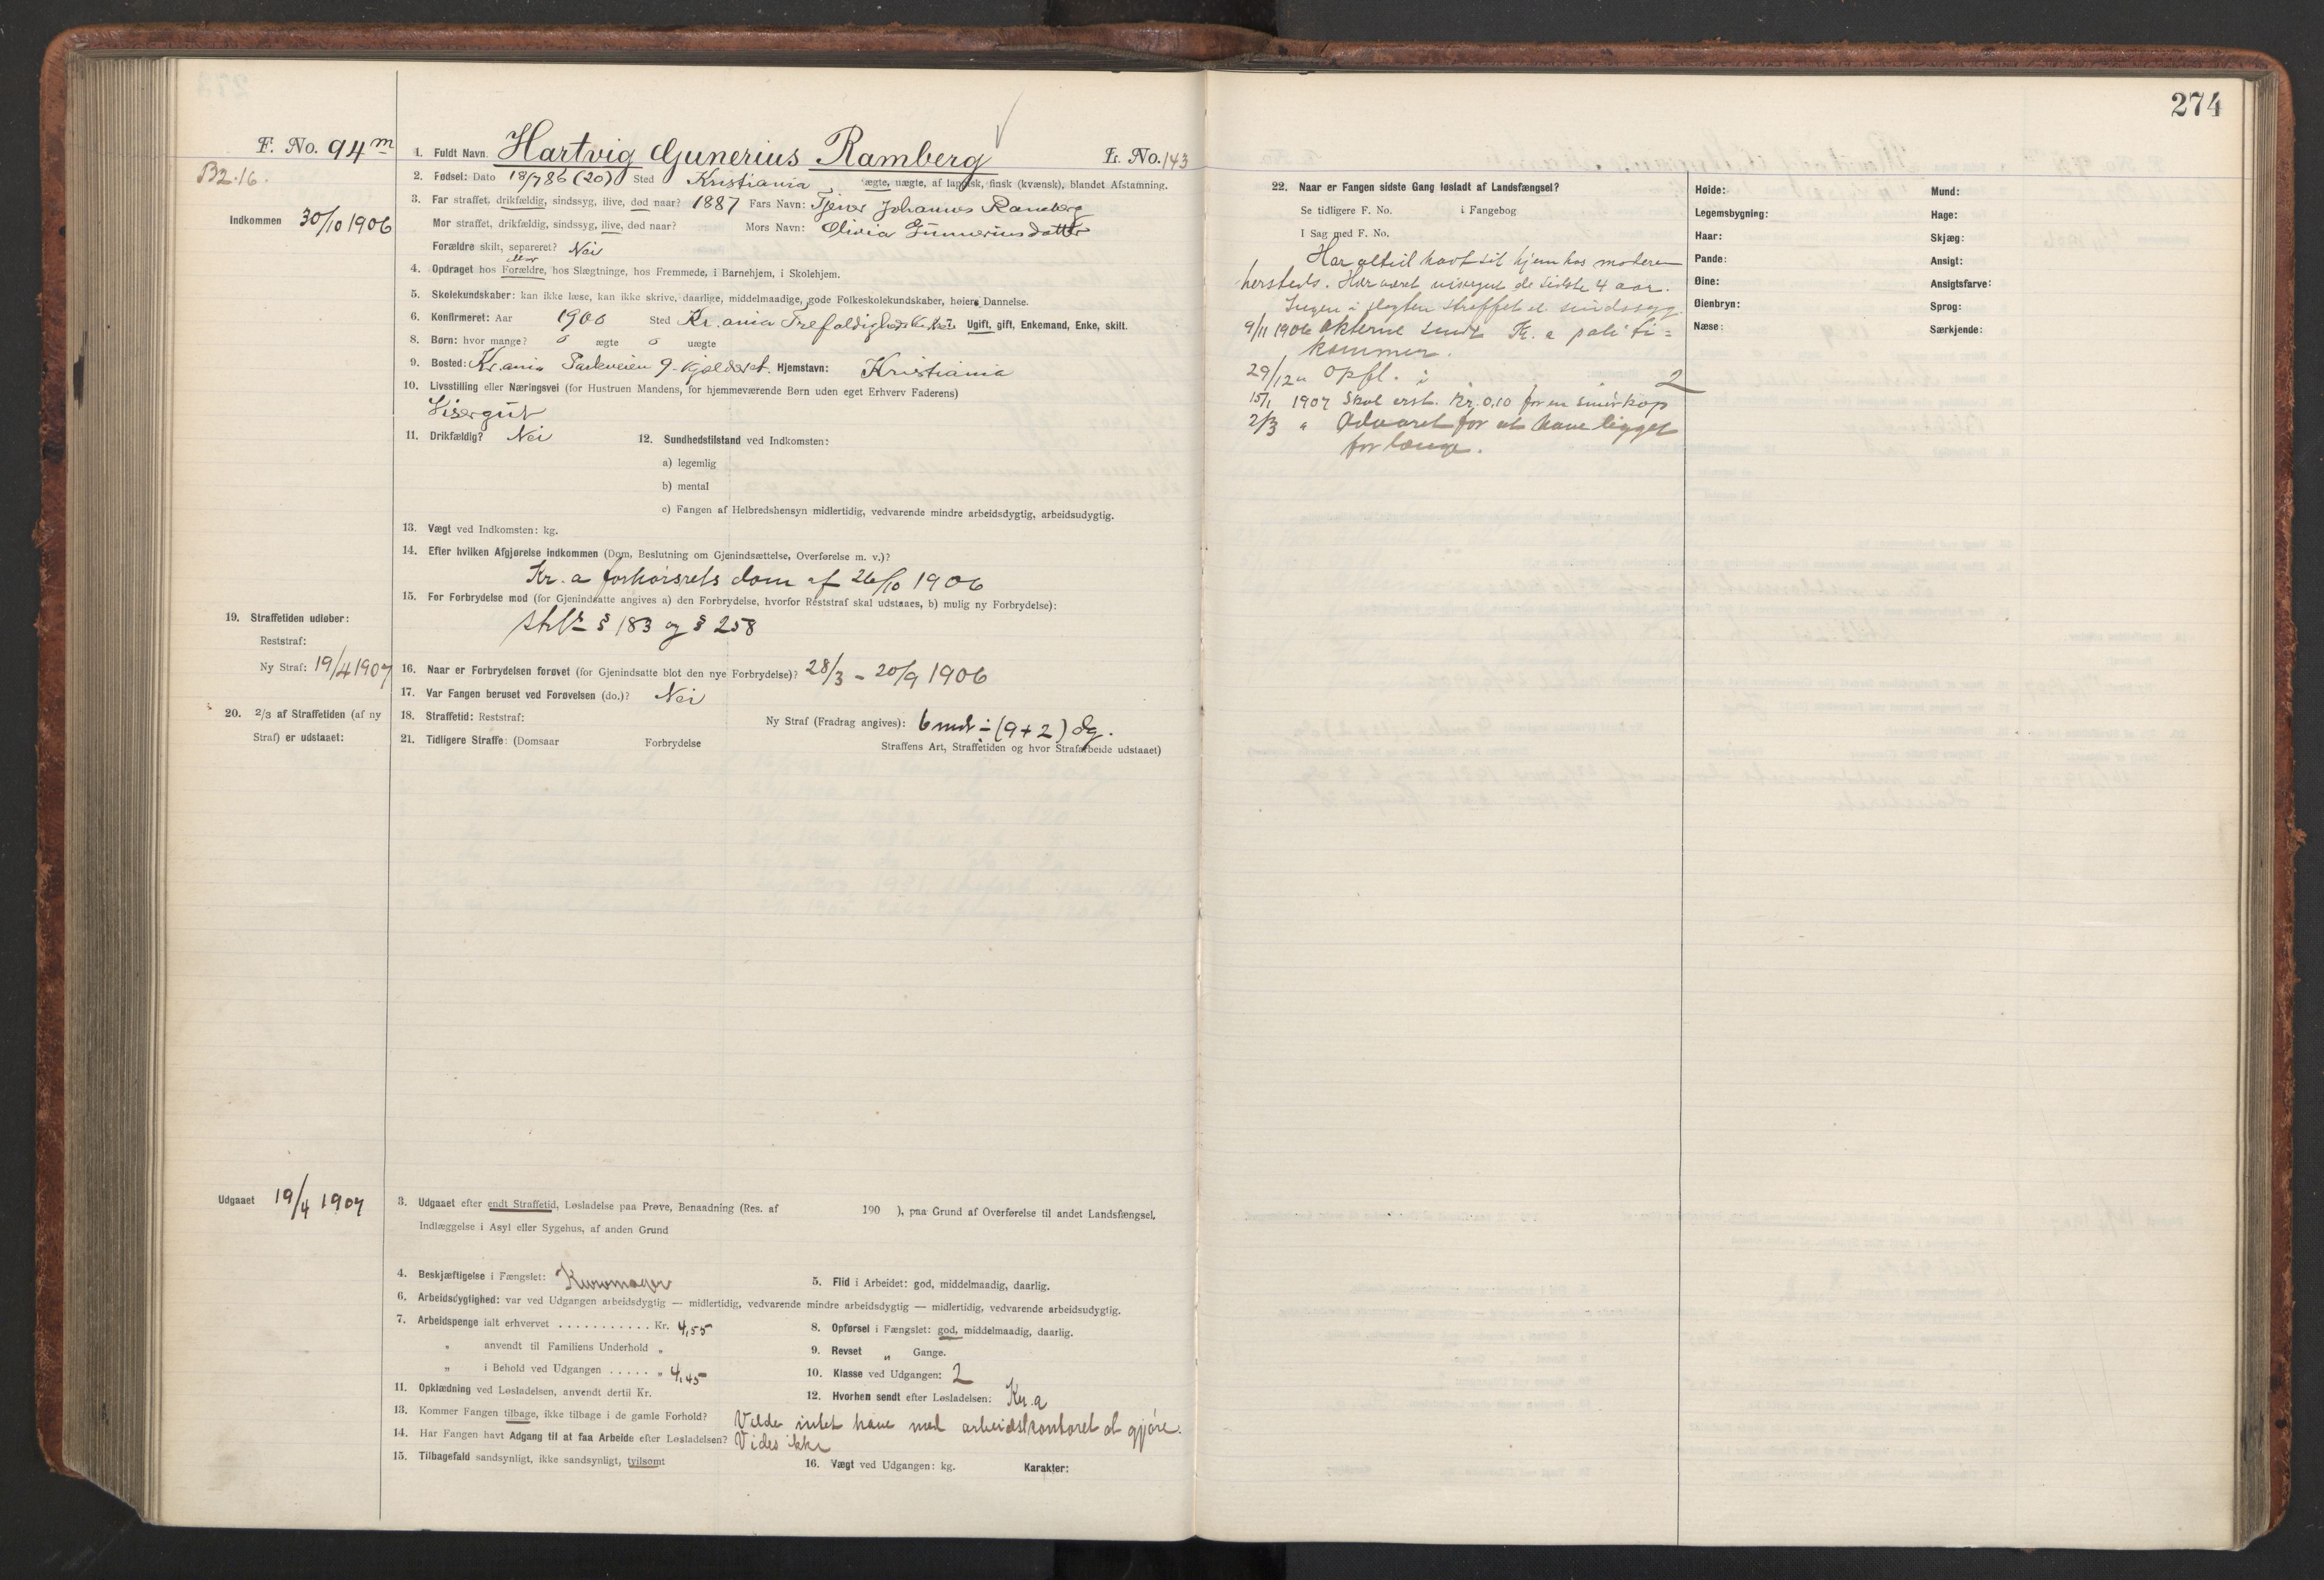 F. No. 94 m
B2.16.
Indkommen 30/10 1906
1. Fuldt Navn. Hartvig Gunerius Ramberg L. No. 143
2. Fødsel: Dato 18/7 86 (20) Sted Kristiania ægte, uægte, af lappisk, finsk (kvænsk), blandet Afstamning.
3. Far straffet, drikfældig, sindssyg, ilive, død naar? 1887 Fars Navn: Tjener Johannes Ramberg
Mor straffet, drikfældig, sindssyg, ilive, død naar? Mors Navn: Olivia Gunneriusdatter
Forældre skilt, separeret? Nei
4. Opdraget hos Forældre, hos Slægtninge, hos Fremmede, i Barnehjem, i Skolehjem.
5. Skolekundskaber: kan ikke læse, kan ikke skrive, daarlige, middelmaadige, gode Folkeskolekundskaber, høiere Dannelse.
6. Konfirmeret: Aar 1900 Sted Kr.ania Trefoldigheds Kirke Ugift, gift, Enkemand, Enke, skilt.
8. Børn: hvor mange? o ægte o uægte
9. Bosted: Kr.ania Parkveien 9. Kjælderet. Hjemstavn: Kristiania
10. Livsstilling eller Næringsvei (for Hustruen Mandens, for hjemmeværende Børn uden eget Erhverv Faderens)
Visergut
11. Drikfældig? Nei 12. Sundhedstilstand ved Indkomsten:
a) legemlig
b) mental
c) Fangen af Helbredshensyn midlertidig, vedvarende mindre arbeidsdygtig, arbeidsudygtig.
13. Vægt ved Indkomsten: kg.
14. Efter hvilken Afgjørelse indkommen (Dom, Beslutning om Gjenindsættelse, Overførelse m. v.)?
Kr.a forhørsrets dom af 26/10 1906
15. For Forbrydelse mod (for Gjenindsatte angives a) den Forbrydelse, hvorfor Reststraf skal udstaaes, b) mulig ny Forbrydelse):
§ 183 og § 258
19. Straffetiden udløber:
Reststraf:
Ny Straf: 19/4 1907
16. Naar er Forbrydelsen forøvet (for Gjenindsatte blot den nye Forbrydelse)? 28/3 - 20/9 1906
17. Var Fangen beruset ved Forøvelsen (do.)? Nei
20. 2/3 af Straffetiden (af ny
Straf) er udstaaet:
18. Straffetid: Reststraf: Ny Straf (Fradrag angives): 6 mdr ÷ (9+2) dg.
21. Tidligere Straffe: (Domsaar Forbrydelse Straffens Art, Straffetiden og hvor Strafarbeide udstaaet)
Udgaaet 19/4 1907
3. Udgaaet efter endt Straffetid, Løsladelse paa Prøve, Benaadning (Res. af 190 ), paa Grund af Overførelse til andet Landsfængsel,
Indlæggelse i Asyl eller Sygehus, af anden Grund
4. Beskjæftigelse i Fængslet: Kurvmager 5. Flid i Arbeidet: god, middelmaadig, daarlig.
6. Arbeidsdygtighed: var ved Udgangen arbeidsdygtig — midlertidig, vedvarende mindre arbeidsdygtig — midlertidig, vedvarende arbeidsudygtig.
7. Arbeidspenge ialt erhvervet . . . . . . . . . . . Kr. 4,55 8. Opførsel i Fængslet: god, middelmaadig, daarlig.
" anvendt til Familiens Underhold " 9. Revset " Gange.
" i Behold ved Udgangen . . . . . " 4,45 10. Klasse ved Udgangen: 2
11. Opklædning ved Løsladelsen, anvendt dertil Kr. 12. Hvorhen sendt efter Løsladelsen: Kr.a
13. Kommer Fangen tilbage, ikke tilbage i de gamle Forhold? Vilde intet have med arbeidskontoret at gjøre.
14. Har Fangen havt Adgang til at faa Arbeide efter Løsladelsen? Vides ikke
15. Tilbagefald sandsynligt, ikke sandsynligt, tvilsomt 16. Vægt ved Udgangen: kg. Karakter:
274
22. Naar er Fangen sidste Gang løsladt af Landsfængsel?
Se tidligere F. No. i Fangebog
I Sag med F. No.
Har altid havt sit hjem hos moderen
hersteds. Har været visergut de sidste 4 aar.
Ingen i slegten straffet el. sindssyg.
9/11 1906 Akterne sendt Kr.a politi=
kammer.
29/12 " Opfl. i 2
15/1 1907 Skal erst. Kr. 0,10 for en smørkop
2/3 " Advaret for at have ligget
for længe.
Høide: Mund:
Legemsbygning: Hage:
Haar: Skjæg:
Pande: Ansigt:
Øine: Ansigtsfarve:
Øienbryn: Sprog:
Næse: Særkjende: